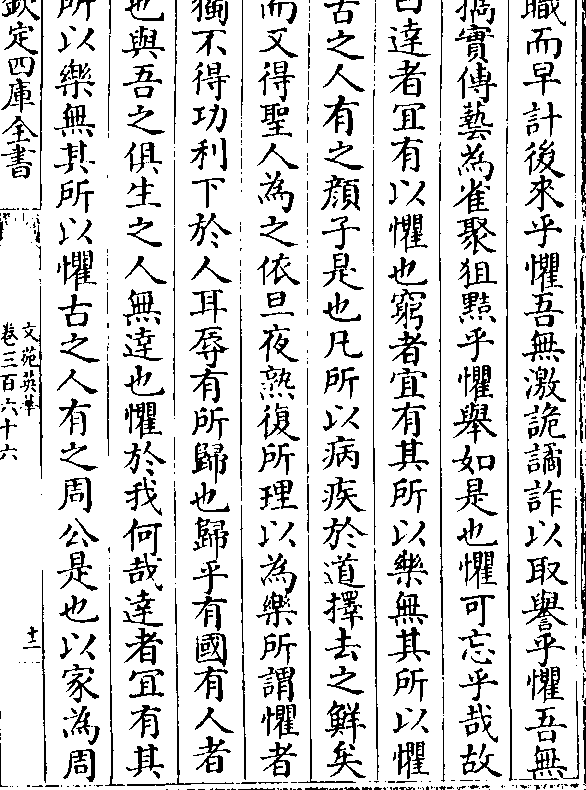 職而早計後來乎懼吾無激詭譎詐以取譽乎懼吾無
摛實傅藝為雀聚狙黠乎懼舉如是也懼可忘乎哉故
曰達者宜有以懼也窮者宜有其所以樂無其所以懼
古之人有之顔子是也凡所以病疾於道擇去之鮮矣
而又得聖人為之依旦夜熟復所理以為樂所謂懼者
獨不得功利下於人耳辱有所歸也歸乎有國有人者
也與吾之俱生之人無達也懼於我何哉達者宜有其
所以樂無其所以懼古之人有之周公是也以家為周
欽定四庫全書
文苑英華
卷三百六十六
十二